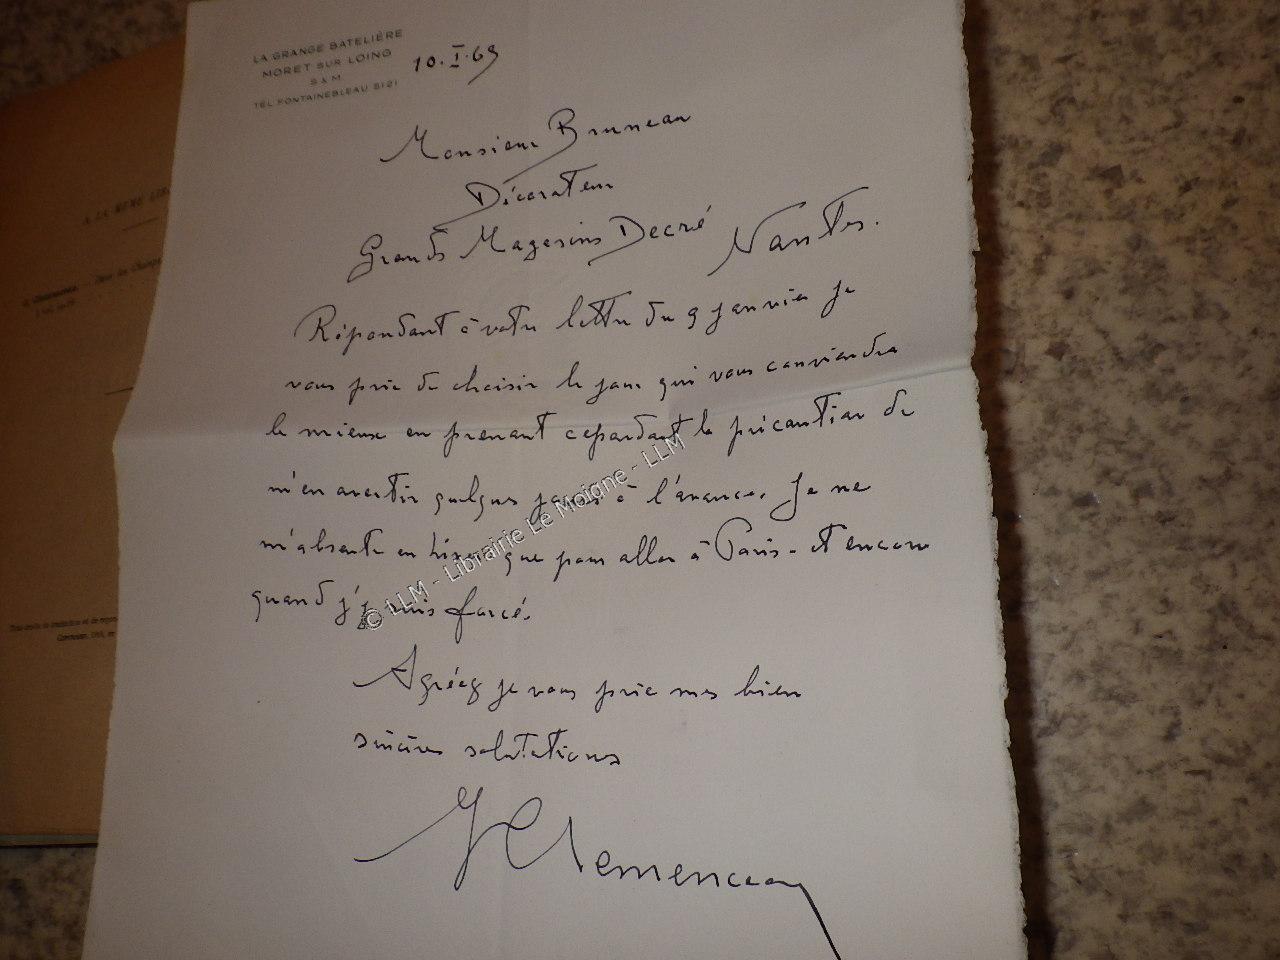 LA GRANGE BATELIÈRE
MORET SUR LOING
S & M
TÉL. FONTAINEBLEAU 5121
10.I.69
Monsieur Bruneau
Décorateur
Grands Magasins Decré Nantes.
Répondant à votre lettre du 9 janvier je
vous prie de choisir le jour qui vous conviendra
le mieux en prenant cependant la précaution de
m'en avertir quelques jours à l'avance. Je ne
m'absente en hiver que pour aller à Paris - et encore
quand j'y suis forcé.
Agréez je vous prie mes bien
sincères salutations
Clemenceau
© LLM - Librairie Le Moigne - LLM
A LA MÊME